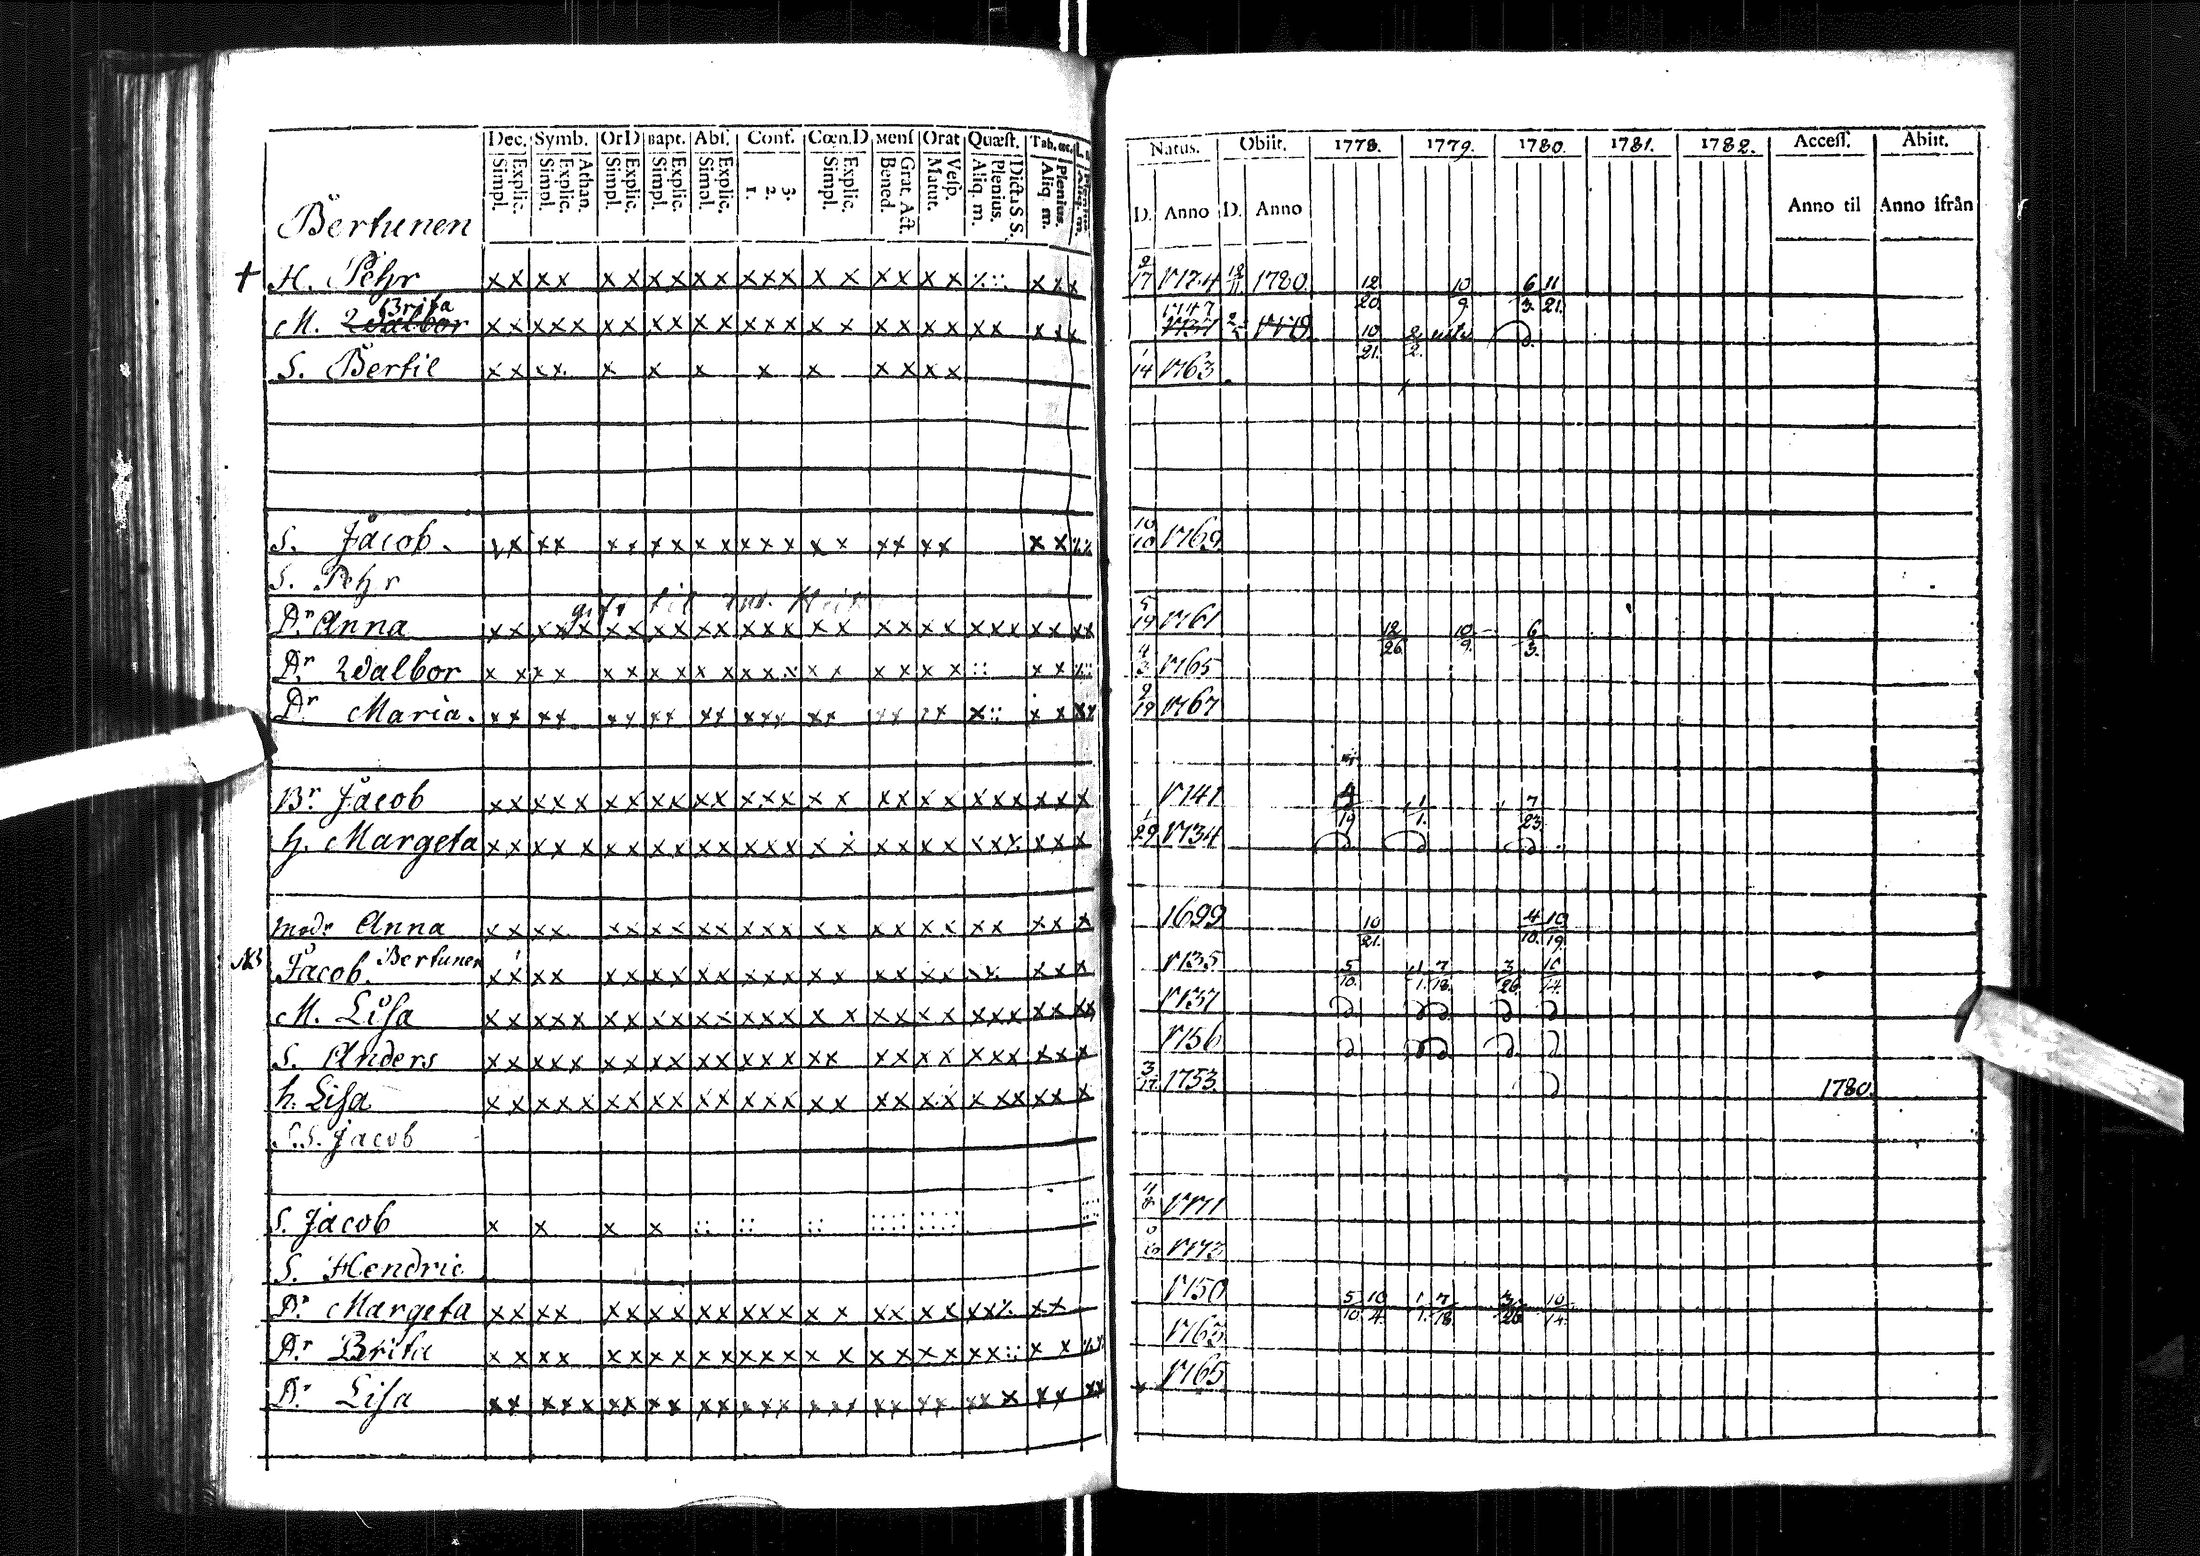 Dec. Symb. Or D Bapt. Abſ. Conf. Cœn. D. Menſ Orat Quæſt. Tab. œc.
Simpl. Explic. Simpl. Explic. Athan. Simpl. Explic. Simpl. Explic. Simpl. Explic. 1. 2. 3. Simpl. Explic. Bened. Grat. Act. Matut. Veſp. Aliq. m. Plenius. Dicta S. S. Aliq. m. Plenius.
Natus. Obiit. 1778. 1779. 1780. 1781. 1782. Acceſſ. Abiit.
D. Anno D. Anno Anno til Anno ifrån
Bertunen
+ H. Pehr xx xx xx xx xx xxx x x xx xx 2/17 1724 12/11 1780 12/20 10/9 6/3 11/21
Brita 1747
M. Walbor xx xxx xx xx xx xxx x x xx xx xx xxx 1737 10/21 2/2
S. Bertil xx xx x x x x x xx xx 1/14 1763
S. Jacob. xx xx xx xx xx xxx x x xx xx x x 10/10 1769
S. Pehr
gift til
Dr. Anna xx xxx xx xx xx xxx xx xx xx xxx xx xx 5/19 1761 12/26 10/9 6/3
Dr. Walbor x x xx xx xx xx xx x x x x x x :: x x 4/3 1765
Dr Maria. xx xx xx xx xx xxx xx xx xx x:: x x xx 2/19 1767
Br. Jacob xx xxx xx xx xx xxx x x xx xx xxx xx x 1741 1/1 7/23
h. Margeta xx xx x xx xx xx xxx x x xx xx xxx xx x 1/29 1734
modr Anna xx xx xx xx xx xxx xx xx xx xx xx x 1699 10/21 4/10 10/19
NB Jacob. Bertunen xx xx xx xx xx xxx xx xx xx xx x 1735 5/10 1/1 7/18 3/26
M. Liſa xx xxx xx xx xx xxx x x xx xx xxx xx xx 1737
S. Anders xx xxx xx xx xx xxx xx xx xx xxx xx x 1756
h. Liſa xx xxx xx xx xx xxx xx xx xx xxx xx x 3/17 1753 1780.
S.S. Jacob
S. Jacob x x x x :: :: :: 1771
S. Hendric 1773
Dr. Margeta xx xx xx xx xx xxx x x xx xx xx xx 1750 5/10 10/4 1/1 7/18 10/14
Dr. Brita x x xx xx xx xx xxx x x xx xx xx:: x x 1763
Dr Liſa xx xxx xx xx xx xxx xxx xx xx xx x xx xx 1765